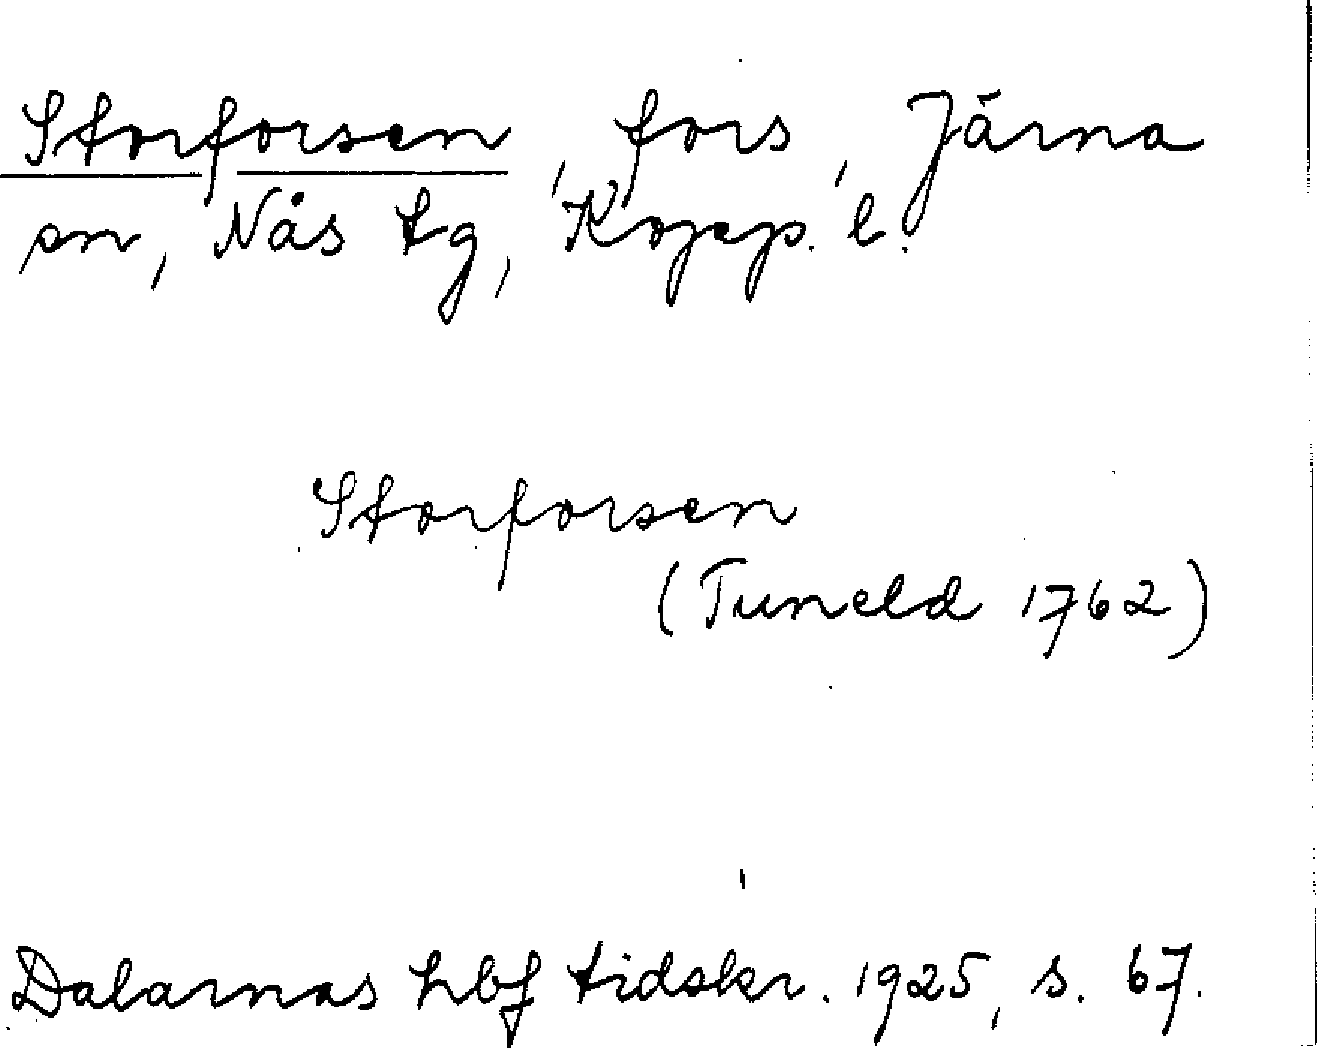 Storforsen, fors, Järna
sn, Nås tg, Kopp. l.
Storforsen
(Tuneld 1762)
Dalarnas hbf tidskr. 1925, s. 67.